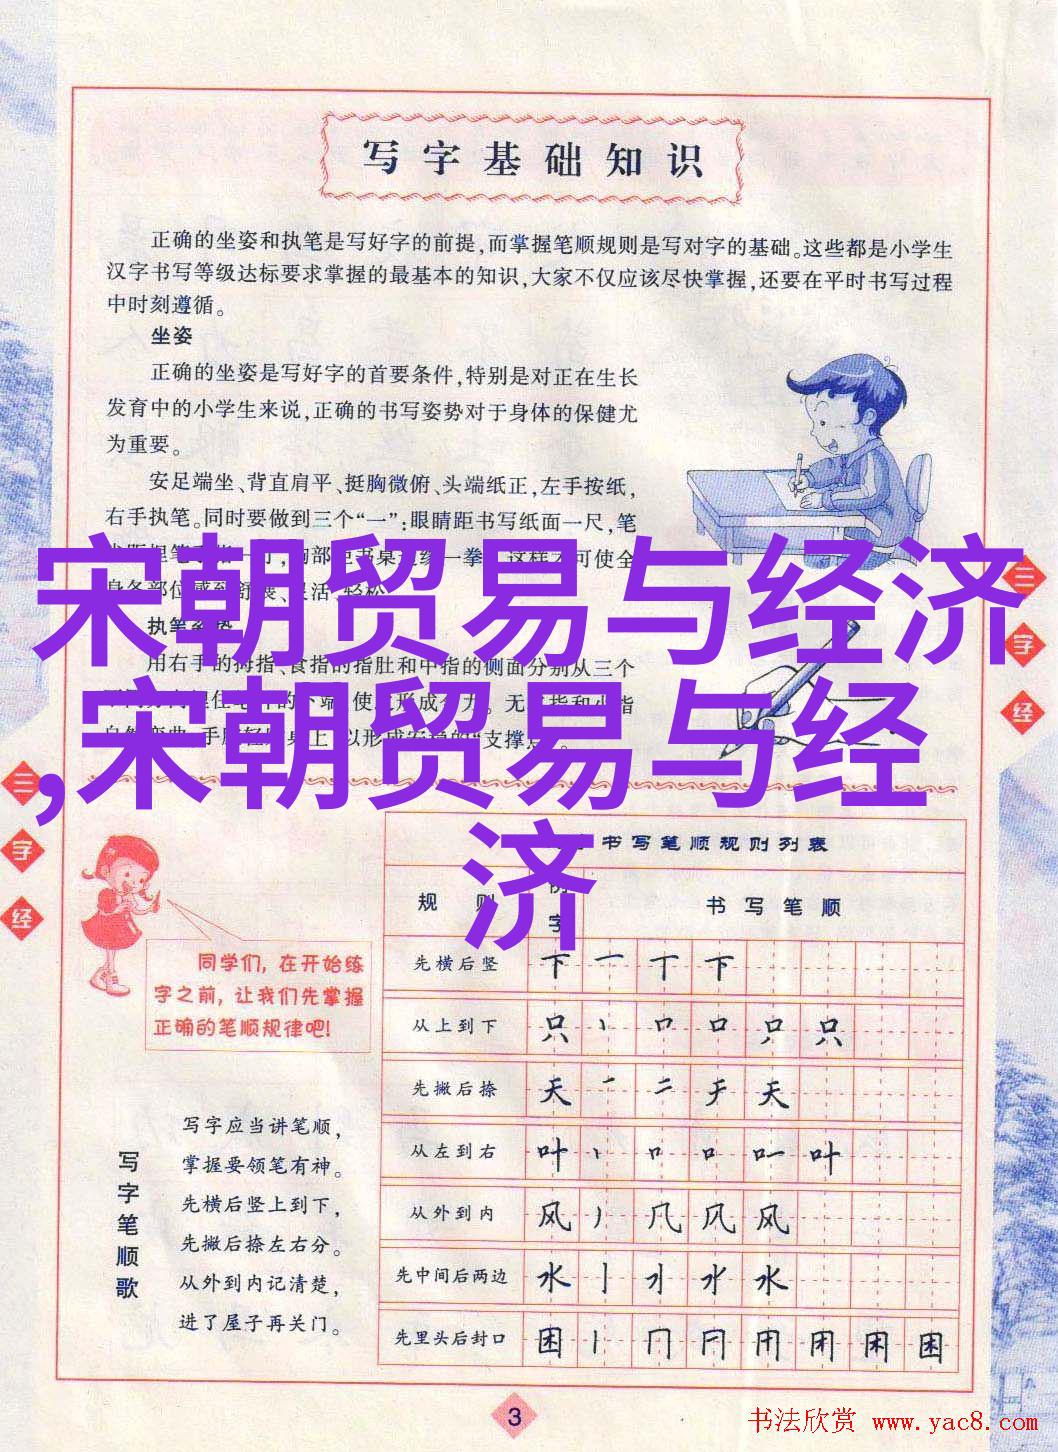 写字基础知识
正确的坐姿和执笔是写好字的前提,而掌握笔顺规则是写对字的基础。这些都是小学生
汉字书写等级达标要求掌握的最基本的知识,大家不仅应该尽快掌握,还要在平时书写过程
中时刻遵循。
坐姿
正确的坐姿是写好字的首要条件,特别是对正在生长
发育中的小学生来说,正确的书写姿势对于身体的保健尤
为重要。
安足端坐、背直肩平、挺胸微俯、头端纸正,左手按纸,
右手执笔。同时要做到三个“一”:眼睛距书写纸面一尺,笔
宋朝贸易与经济
,宋朝贸易与经
济
部 书桌 一拳 这样 可使全
身各部位感到舒 、 活、轻松
执笔
用右手的拇指、食指的指肚和中指的侧面分别从三个
使 形成 力。无 指和小指
手 桌上 以形成 的“支撑点”。
三
字
经
三
字
经
书写笔顺规则列表
规则 例字 书写笔顺
先横后竖 下 一 丅 下
从上到下 只 丶 口 口 只 只
先撇后捺 天 一 二 于 天
从左到右 叶 丶 口 口 叶
从外到内 风 丿 几 风 风
先中间后两边 水 亅 水 水
先里头后封口 困 丨 冂 困
同学们,在开始练
字之前,让我们先掌握
正确的笔顺规律吧!
写字笔顺歌
写字应当讲笔顺,
掌握要领笔有神。
先横后竖上到下,
先撇后捺左右分。
从外到内记清楚,
进了屋子再关门。
3
书法欣赏 www.yac8.com